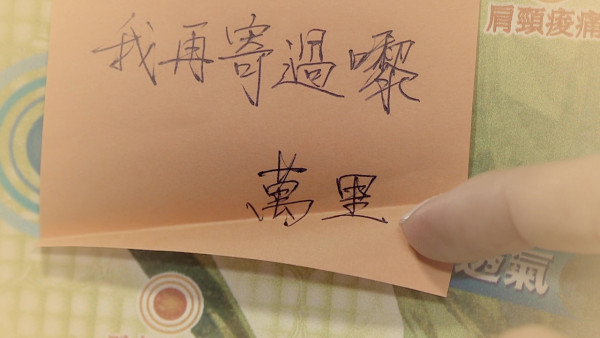 肩頸痠痛
我再寄過嚟
萬里
透氣